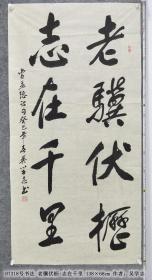 老骥伏櫪
志在千里
曹孟德诗句癸巳年
吴学志书
07318号书法 老骥伏枥·志在千里 138×68cm 作者：吴学志